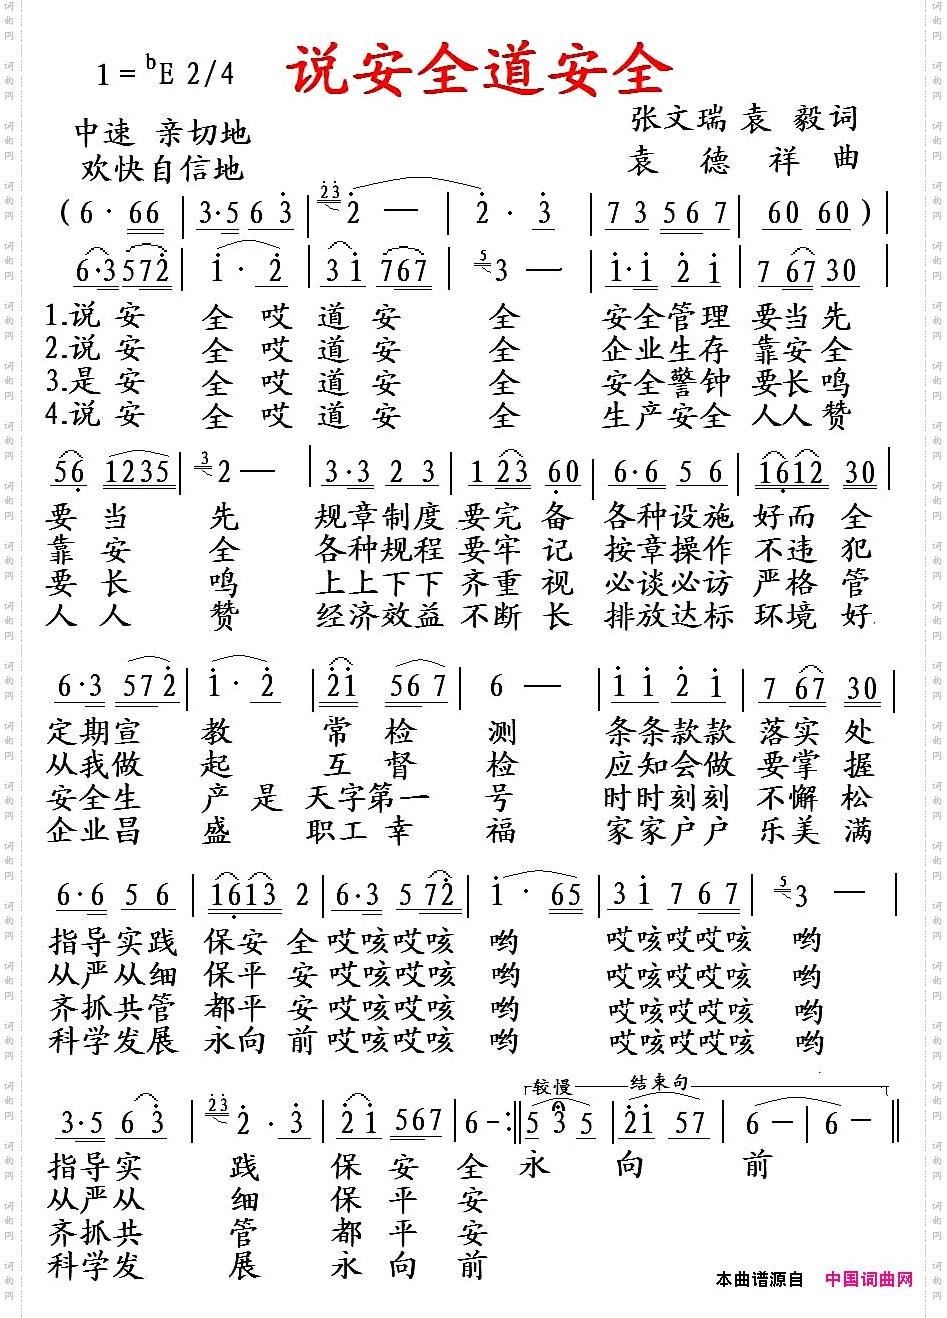 说安全道安全
1=bE 2/4
中速 亲切地
欢快自信地
张文瑞 袁 毅词
袁 德 祥 曲
(6· 66 | 3·5 6 3 | 23 2 — | 2 · 3 | 7 3 5 6 7 | 60 60 ) |
6·3 572 | 1 · 2 | 3 1 767 | 5 3 — | 1·1 2 1 | 7 67 30 |
1.说 安 全 哎 道 安 全 安全管理 要当先
2.说 安 全 哎 道 安 全 企业生存 靠安全
3.是 安 全 哎 道 安 全 安全警钟 要长鸣
4.说 安 全 哎 道 安 全 生产安全 人人赞
56 1235 | 3 2 — | 3·3 2 3 | 1 23 60 | 6·6 5 6 | 1612 30 |
要 当 先 规章制度 要完 备 各种设施 好而 全
靠 安 全 各种规程 要牢 记 按章操作 不违 犯
要 长 鸣 上上下下 齐重 视 必谈必访 严格 管
人 人 赞 经济效益 不断 长 排放达标 环境 好
6·3 57 2 | 1 · 2 | 21 56 7 | 6 — | 1 1 2 1 | 7 67 30 |
定期宣 教 常 检 测 条条款款 落实 处
从我做 起 互 督 检 应知会做 要掌 握
安全生 产 是 天字第一 号 时时刻刻 不懈 松
企业昌 盛 职工幸 福 家家户户 乐美 满
6·6 5 6 | 1613 2 | 6·3 5 72 | 1 · 65 | 3 1 7 67 | 5 3 — |
指导实践 保安 全哎咳哎咳 哟 哎咳哎哎咳 哟
从严从细 保平 安哎咳哎咳 哟 哎咳哎哎咳 哟
齐抓共管 都平 安哎咳哎咳 哟 哎咳哎哎咳 哟
科学发展 永向 前哎咳哎咳 哟 哎咳哎哎咳 哟
较慢 结束句
3·5 6 3 | 23 2 · 3 | 2 1 567 | 6 - :‖ 5 3 5 | 21 57 | 6 — | 6 — ‖
指导实 践 保 安 全 永 向 前
从严从 细 保 平 安
齐抓共 管 都 平 安
科学发 展 永 向 前
本曲谱源自 中国词曲网